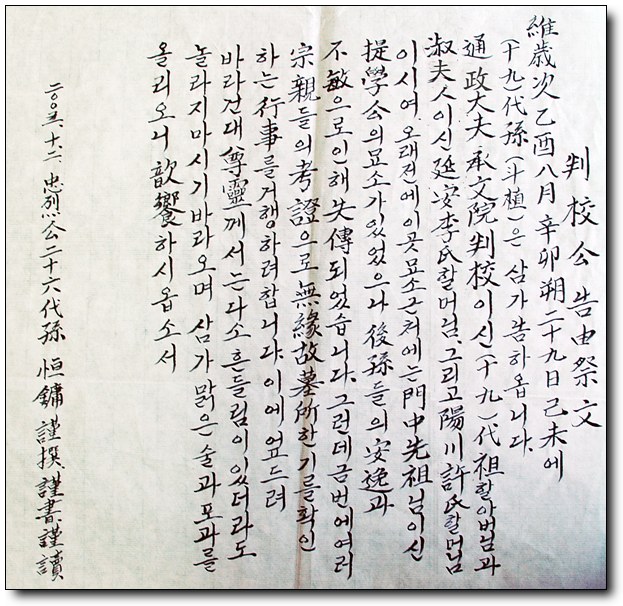 判校公告由祭文
維歲次乙酉八月辛卯朔二十九日己未에
(十九)代孫(斗植)은 삼가 告하옵니다.
通政大夫 承文院 判校이신 (十九)代祖할아버님과
淑夫人이신 延安李氏할머님, 그리고 陽川許氏할머님
이시여. 오래전에 이곳 묘소근처에는 門中先祖님이신
提學公의 묘소가 있었으나 後孫들의 安逸과
不敏으로 인해 失傳되었습니다. 그런데 금번에 여러
宗親들의 考證으로 無緣故墓所 한기를 확인
하는 行事를 거행하려 합니다. 이에 엎드려
바라건대 尊靈께서는 다소 흔들림이 있더라도
놀라지마시기 바라오며 삼가 맑은 술과 포과를
올리오니 歆饗하시옵소서
二○○五. 十. 二. 忠烈公二十六代孫 恒鏞 謹撰 謹書 謹讀